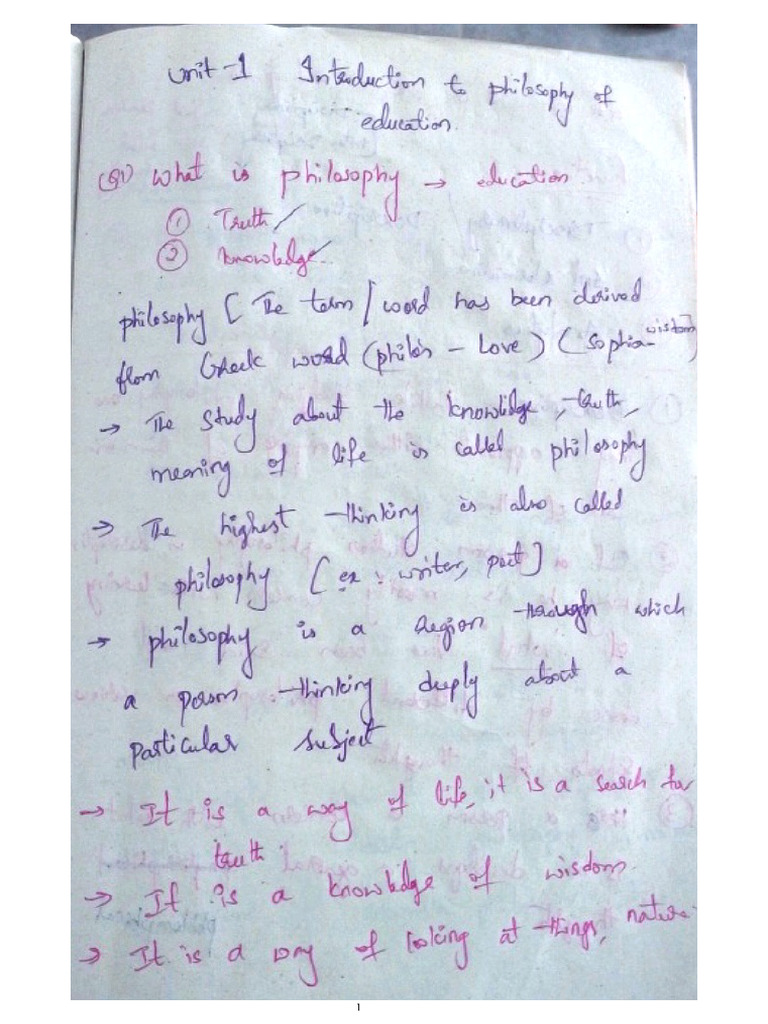 Unit-1 Introduction to philosophy of
education.
(Q1) What is philosophy → education
① Truth ✓
② Knowledge ✓
philosophy [ The term / word has been derived
from Greek word (philos - Love) (Sophia - wisdom)
→ The study about the knowledge, truth,
meaning of life is called philosophy
→ The highest thinking is also called
philosophy [ ex : writer, poet ]
→ philosophy is a region through which
a person thinking deeply about a
particular subject
→ It is a way of life, it is a search for
truth
→ It is a knowledge of wisdom.
→ It is a way of looking at things, nature.
1